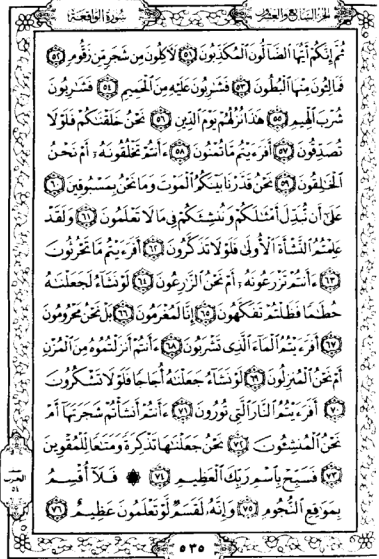 الجزء السابع والعشرون سورة الواقعة
ثُمَّ إِنَّكُمْ أَيُّهَا ٱلضَّآلُّونَ ٱلْمُكَذِّبُونَ ٥١ لَأٓكِلُونَ مِن شَجَرٍ مِّن زَقُّومٍ ٥٢
فَمَالِـُٔونَ مِنْهَا ٱلْبُطُونَ ٥٣ فَشَٰرِبُونَ عَلَيْهِ مِنَ ٱلْحَمِيمِ ٥٤ فَشَٰرِبُونَ
شُرْبَ ٱلْهِيمِ ٥٥ هَٰذَا نُزُلُهُمْ يَوْمَ ٱلدِّينِ ٥٦ نَحْنُ خَلَقْنَٰكُمْ فَلَوْلَا
تُصَدِّقُونَ ٥٧ أَفَرَءَيْتُم مَّا تُمْنُونَ ٥٨ ءَأَنتُمْ تَخْلُقُونَهُۥٓ أَمْ نَحْنُ
ٱلْخَٰلِقُونَ ٥٩ نَحْنُ قَدَّرْنَا بَيْنَكُمُ ٱلْمَوْتَ وَمَا نَحْنُ بِمَسْبُوقِينَ ٦٠
عَلَىٰٓ أَن نُّبَدِّلَ أَمْثَٰلَكُمْ وَنُنشِئَكُمْ فِى مَا لَا تَعْلَمُونَ ٦١ وَلَقَدْ
عَلِمْتُمُ ٱلنَّشْأَةَ ٱلْأُولَىٰ فَلَوْلَا تَذَكَّرُونَ ٦٢ أَفَرَءَيْتُم مَّا تَحْرُثُونَ
٦٣ ءَأَنتُمْ تَزْرَعُونَهُۥٓ أَمْ نَحْنُ ٱلزَّٰرِعُونَ ٦٤ لَوْ نَشَآءُ لَجَعَلْنَٰهُ
حُطَٰمًا فَظَلْتُمْ تَفَكَّهُونَ ٦٥ إِنَّا لَمُغْرَمُونَ ٦٦ بَلْ نَحْنُ مَحْرُومُونَ
٦٧ أَفَرَءَيْتُمُ ٱلْمَآءَ ٱلَّذِى تَشْرَبُونَ ٦٨ ءَأَنتُمْ أَنزَلْتُمُوهُ مِنَ ٱلْمُزْنِ
أَمْ نَحْنُ ٱلْمُنزِلُونَ ٦٩ لَوْ نَشَآءُ جَعَلْنَٰهُ أُجَاجًا فَلَوْلَا تَشْكُرُونَ
٧٠ أَفَرَءَيْتُمُ ٱلنَّارَ ٱلَّتِى تُورُونَ ٧١ ءَأَنتُمْ أَنشَأْتُمْ شَجَرَتَهَآ أَمْ
نَحْنُ ٱلْمُنشِـُٔونَ ٧٢ نَحْنُ جَعَلْنَٰهَا تَذْكِرَةً وَمَتَٰعًا لِّلْمُقْوِينَ
٧٣ فَسَبِّحْ بِٱسْمِ رَبِّكَ ٱلْعَظِيمِ ٧٤ ۞ فَلَآ أُقْسِمُ
بِمَوَٰقِعِ ٱلنُّجُومِ ٧٥ وَإِنَّهُۥ لَقَسَمٌ لَّوْ تَعْلَمُونَ عَظِيمٌ ٧٦
الحزب
٥٤
٥٣٥